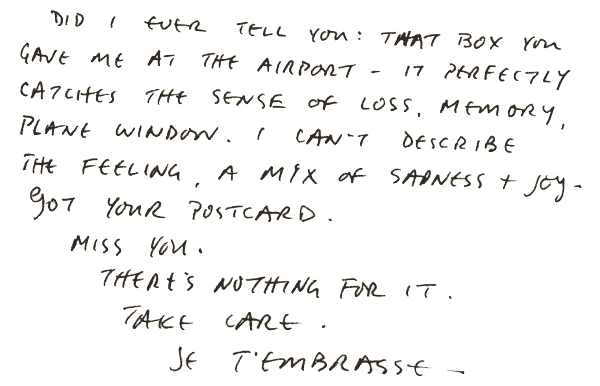 DID I EVER TELL YOU: THAT BOX YOU
GAVE ME AT THE AIRPORT - IT PERFECTLY
CATCHES THE SENSE OF LOSS, MEMORY,
PLANE WINDOW. I CAN'T DESCRIBE
THE FEELING, A MIX OF SADNESS + JOY-
GOT YOUR POSTCARD.
MISS YOU.
THERE'S NOTHING FOR IT.
TAKE CARE.
JE T'EMBRASSE -